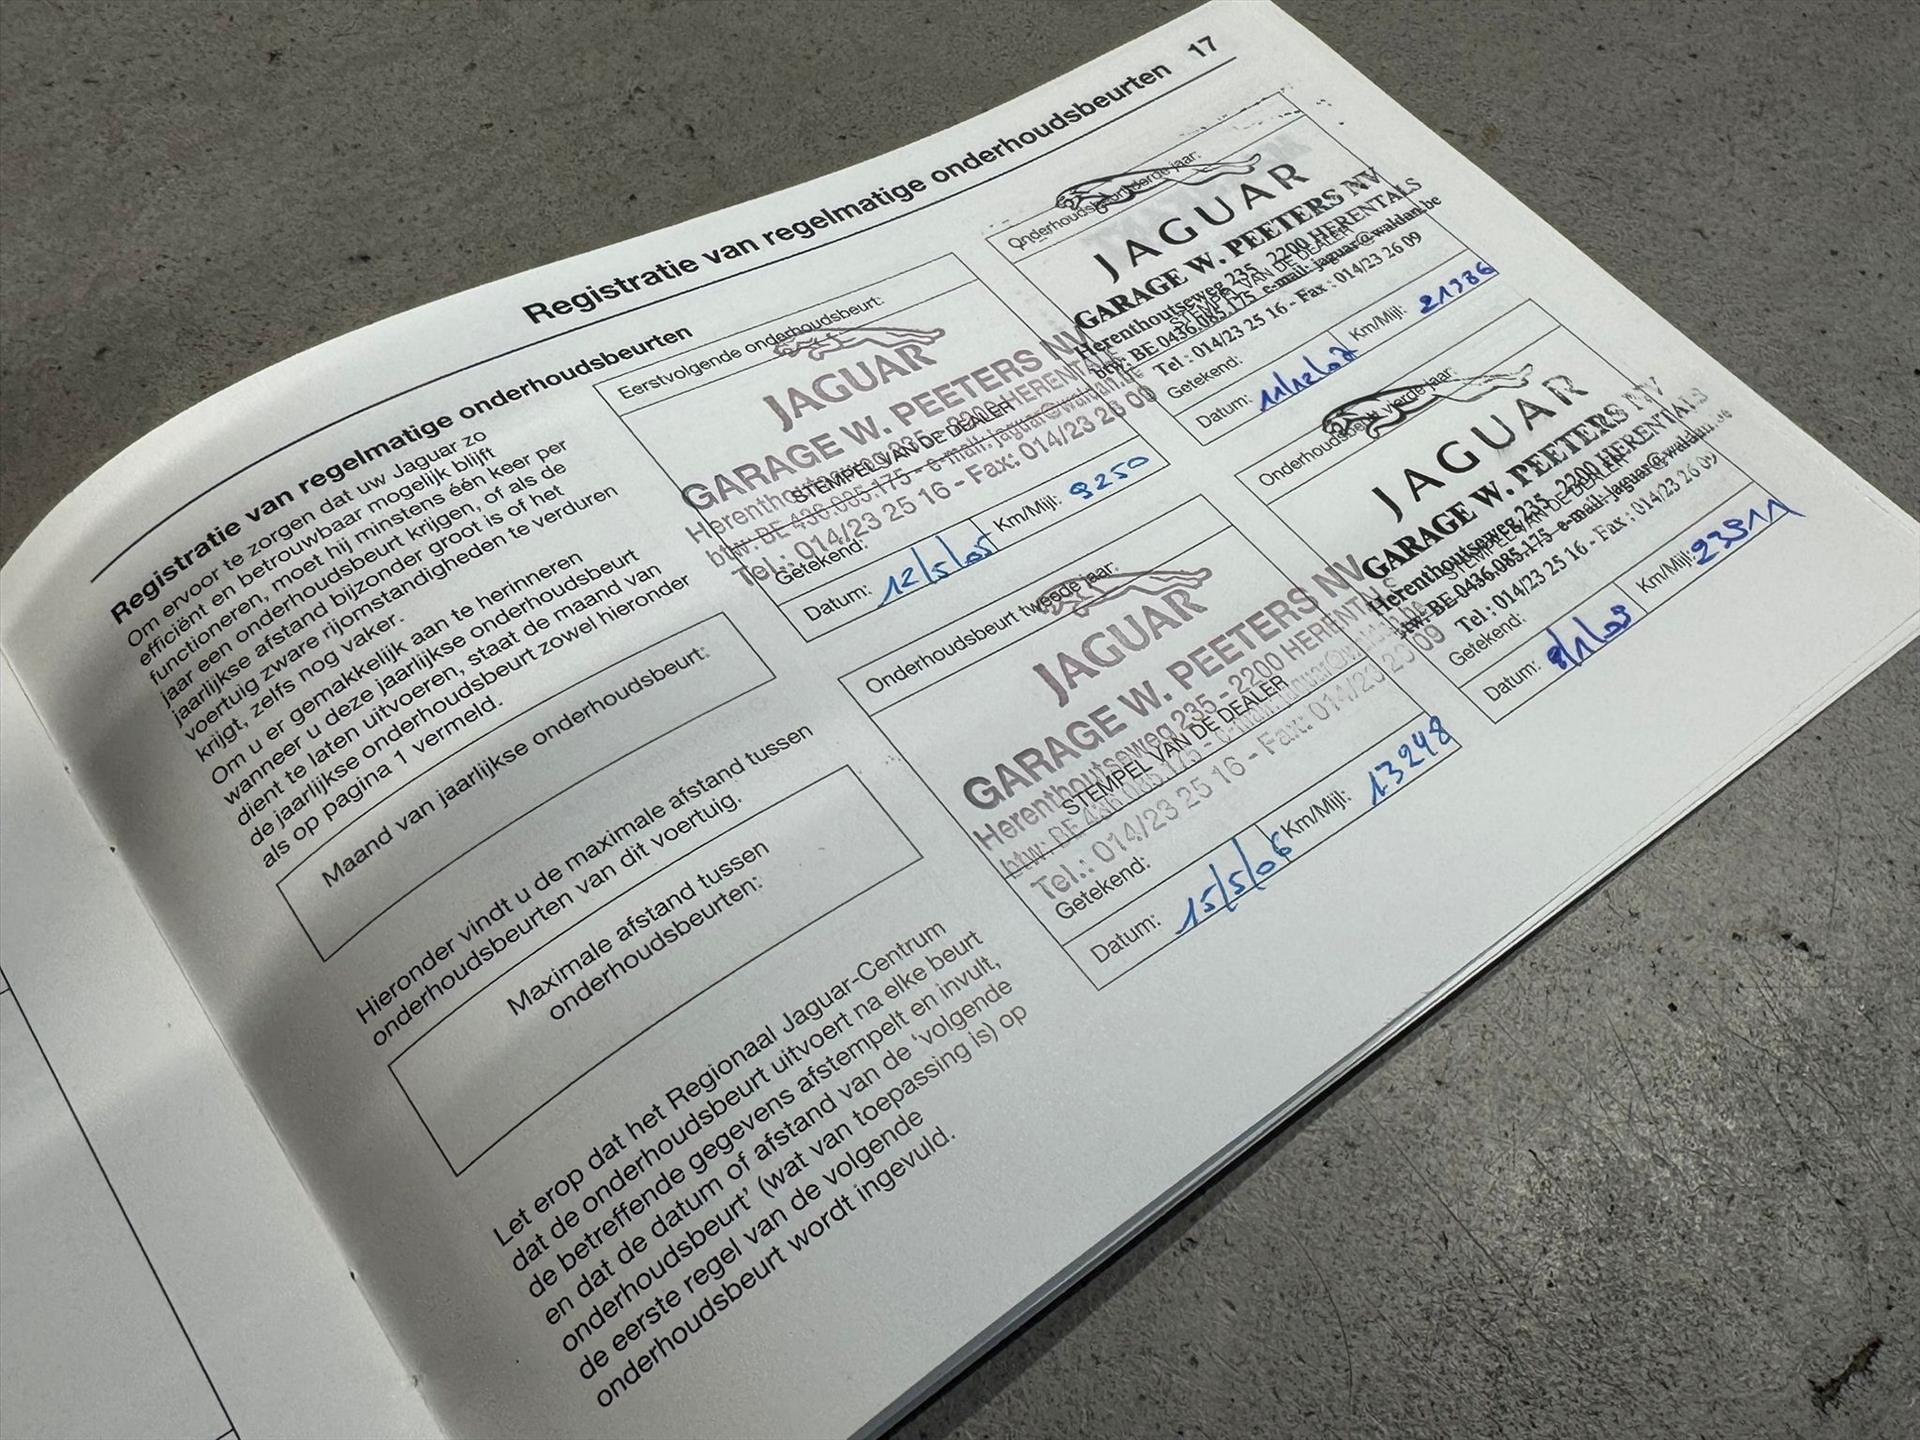 Registratie van regelmatige onderhoudsbeurten 17
Registratie van regelmatige onderhoudsbeurten
Om ervoor te zorgen dat uw Jaguar zo
efficiënt en betrouwbaar mogelijk blijft
functioneren, moet hij minstens één keer per
jaar een onderhoudsbeurt krijgen, of als de
jaarlijkse afstand bijzonder groot is of het
voertuig zware rijomstandigheden te verduren
krijgt, zelfs nog vaker.
Om u er gemakkelijk aan te herinneren
wanneer u deze jaarlijkse onderhoudsbeurt
dient te laten uitvoeren, staat de maand van
de jaarlijkse onderhoudsbeurt zowel hieronder
als op pagina 1 vermeld.
Maand van jaarlijkse onderhoudsbeurt:
Hieronder vindt u de maximale afstand tussen
onderhoudsbeurten van dit voertuig.
Maximale afstand tussen
onderhoudsbeurten:
Let erop dat het Regionaal Jaguar-Centrum
dat de onderhoudsbeurt uitvoert na elke beurt
de betreffende gegevens afstempelt en invult,
en dat de datum of afstand van de 'volgende
onderhoudsbeurt' (wat van toepassing is) op
de eerste regel van de volgende
onderhoudsbeurt wordt ingevuld.
Eerstvolgende onderhoudsbeurt:
JAGUAR
GARAGE W. PEETERS NV
Herenthoutseweg 235 - 2200 HERENTALS
STEMPEL VAN DE DEALER
btw: BE 436.085.175 - e-mail: jaguar@waldan.be
Tel.: 014/23 25 16 - Fax: 014/23 26 09
Getekend:
Datum: 12/5/05 Km/Mijl: 9250
Onderhoudsbeurt tweede jaar:
JAGUAR
GARAGE W. PEETERS NV
Herenthoutseweg 235 - 2200 HERENTALS
STEMPEL VAN DE DEALER
btw: BE 436.085.175 - e-mail: jaguar@waldan.be
Tel.: 014/23 25 16 - Fax: 014/23 26 09
Getekend:
Datum: 15/5/06 Km/Mijl: 13248
Onderhoudsbeurt derde jaar:
JAGUAR
GARAGE W. PEETERS NV
Herenthoutseweg 235 2200 HERENTALS
STEMPEL VAN DE DEALER
btw: BE 0436.085.175 e-mail: jaguar@waldan.be
Tel : 014/23 25 16 - Fax : 014/23 26 09
Getekend:
Datum: 11/12/07 Km/Mijl: 21786
Onderhoudsbeurt vierde jaar:
JAGUAR
GARAGE W. PEETERS NV
Herenthoutseweg 235 2200 HERENTALS
STEMPEL VAN DE DEALER
btw: BE 0436.085.175 e-mail: jaguar@waldan.be
Tel : 014/23 25 16 - Fax : 014/23 26 09
Getekend:
Datum: /1/09 Km/Mijl: 23911